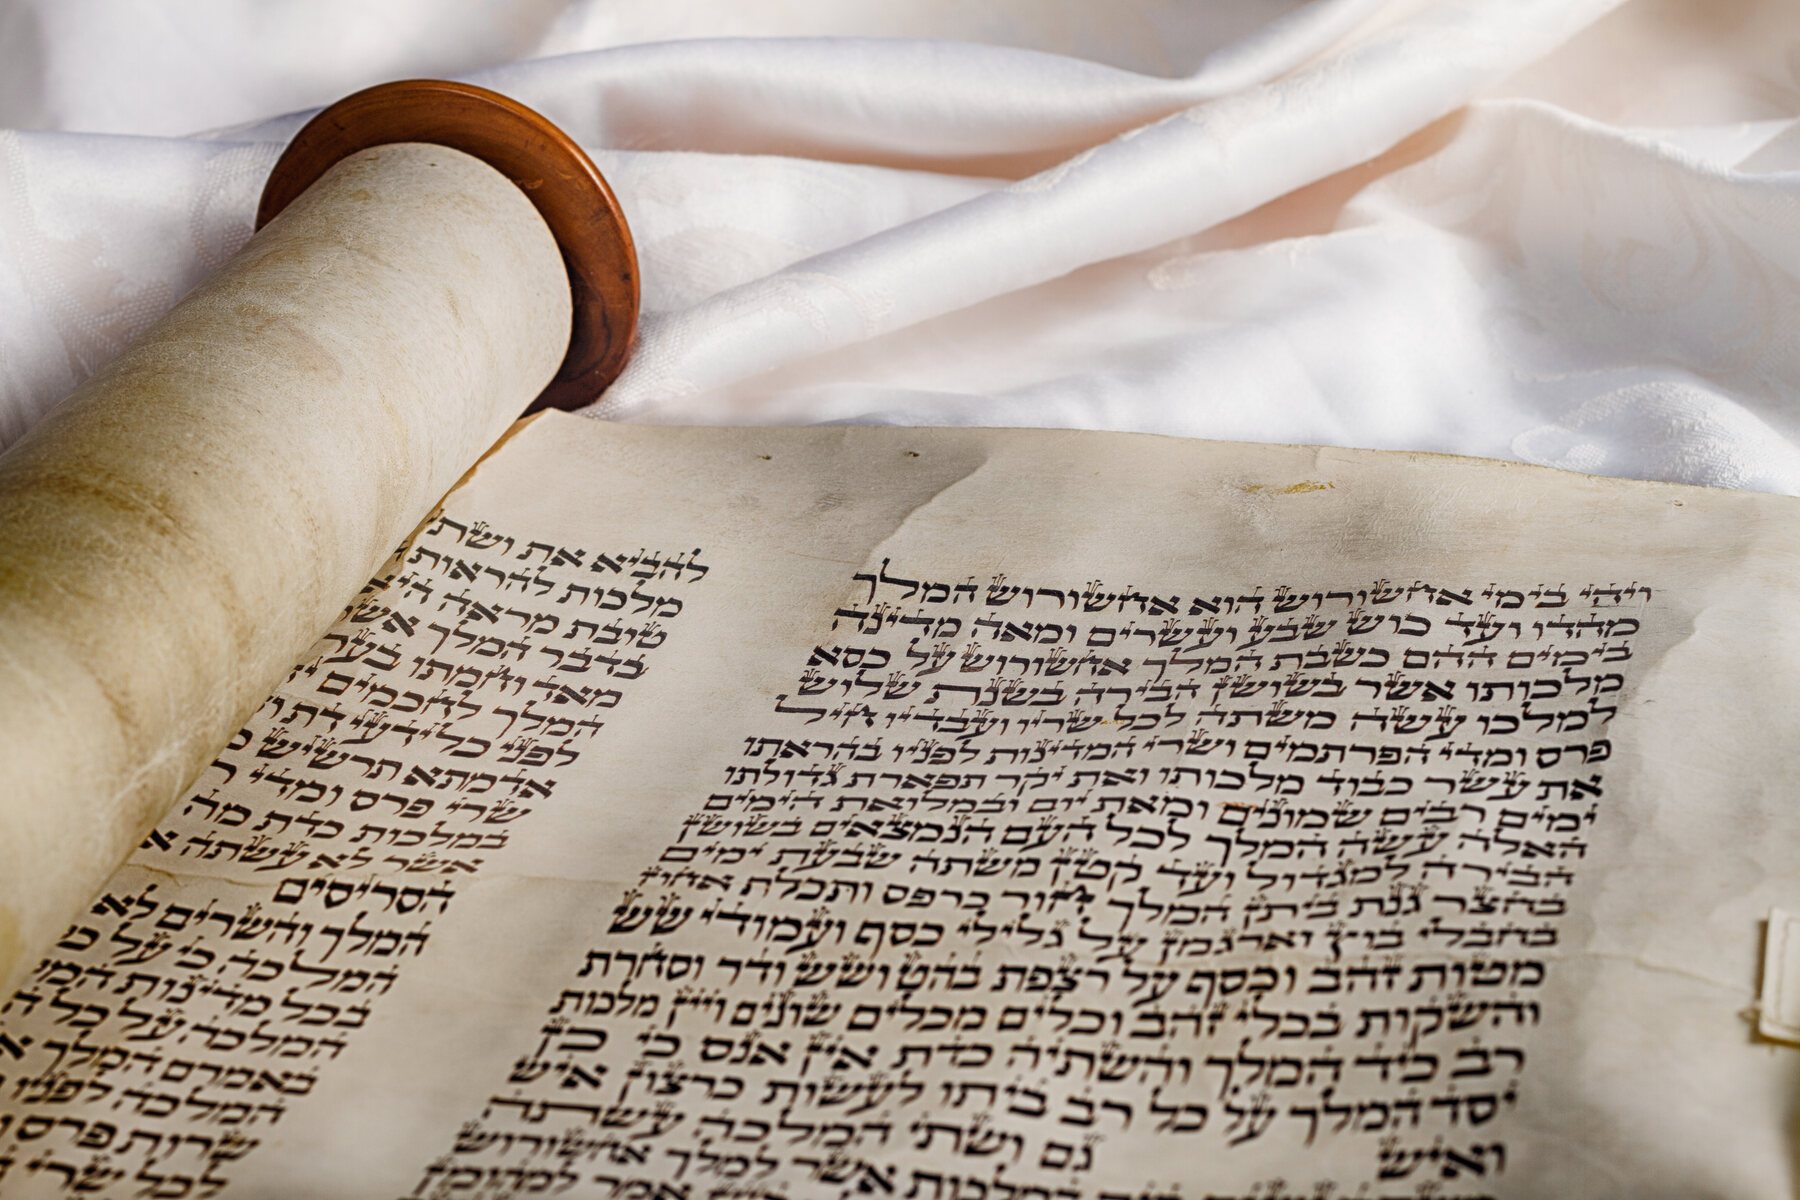 ויהי בימי אחשורוש הוא אחשורוש המלך
מהדו ועד כוש שבע ועשרים ומאה מדינה
בימים ההם כשבת המלך אחשורוש על כסא
מלכותו אשר בשושן הבירה בשנת שלוש
למלכו עשה משתה לכל שריו ועבדיו חיל
פרס ומדי הפרתמים ושרי המדינות לפניו בהראתו
את עשר כבוד מלכותו ואת יקר תפארת גדולתו
ימים רבים שמונים ומאת יום ובמלואת הימים
האלה עשה המלך לכל העם הנמצאים בשושן
הבירה למגדול ועד קטן משתה שבעת ימים
בחצר גנת ביתן המלך חור כרפס ותכלת אחוז
בחבלי בוץ וארגמן על גלילי כסף ועמודי שש
מטות זהב וכסף על רצפת בהט ושש ודר וסחרת
והשקות בכלי זהב וכלים מכלים שונים ויין מלכות
רב כיד המלך והשתיה כדת אין אנס כי כן
יסד המלך על כל רב ביתו לעשות כרצון איש
ואיש גם ושתי המלכה עשתה
המלכות אשר למלך אחשורוש
אמר למהומן
להביא את ושתי
מלכות להראות
טובת מראה היא
בדבר המלך אשר
מאד וחמתו בערה
המלך לחכמים
לפני כל ידעי דת
אדמתא תרשיש
שרי פרס ומדי
במלכות כדת מה
אשר לא עשתה
הסריסים
המלך והשרים לא
המלכה כי על
בכל מדינות
המלכה על כל
באמרם המלך
המלכה לפניו
שרות פרס
לכל שרי